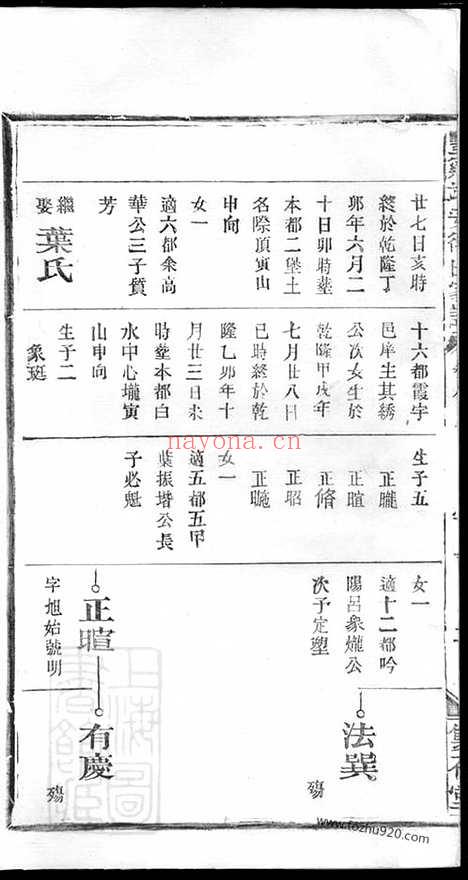 廿七日亥時
終於乾隆丁
卯年六月二
十日卯時塟
本都二堡土
名際頂寅山
申向
女一
適六都余高
華公三子質
芳
繼娶葉氏
十六都霞宇
邑庠生其綉
公次女生於
乾隆甲戌年
七月廿八日
巳時終於乾
隆乙卯年十
月廿三日未
時塟本都白
水中心壠寅
山申向
生子二
象珽
生子五
正曨
正暄
正脩
正昭
正暆
女一
適五都五甲
葉振堦公長
子必魁
女一
適十二都吟
陽呂衆爖公
次子定塱
法巽
殤
正暄
字旭始號明
有慶
殤
nayona.cn
www.fozhu920.com